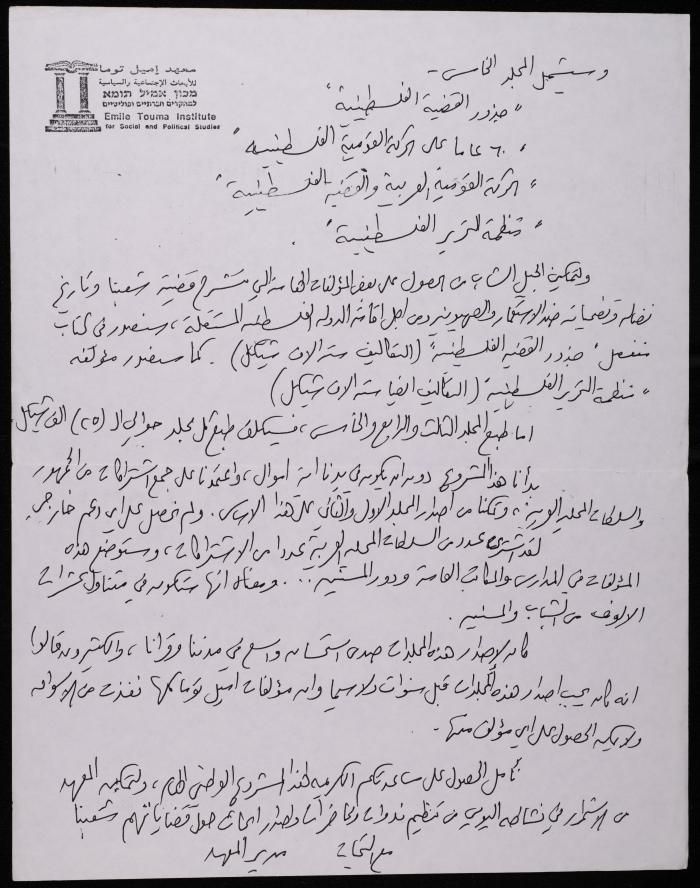 معهد إميل توما
للأبحاث الإجتماعية والسياسية
מכון אמיל תומא
למחקרים חברתיים ופוליטיים
Emile Touma Institute
for Social and Political Studies
وسيشمل المجلد الخامس -
"جذور القضية الفلسطينية"
"٦٠ عاما على الحركة القومية الفلسطينية"
"الحركة القومية العربية والقضية الفلسطينية"
"منظمة التحرير الفلسطينية"
ولتمكين الجيل الشاب من الحصول على بعض المؤلفات الهامة التي تشرح قضية شعبنا وتاريخ
نضاله وتضحياته ضد الاستعمار والصهيونية ومن اجل اقامة الدولة الفلسطينية المستقلة، سنصدر في كتاب
منفصل "جذور القضية الفلسطينية" (التكاليف ستة الاف شيكل). كما سنصدر مؤلفه
"منظمة التحرير الفلسطينية" (التكاليف ايضا ستة الاف شيكل)
اما طبع المجلد الثالث والرابع والخامس، فسيكلف طبع كل مجلد حوالي ال (٢٥) الف شيكل.
بدأنا هذا المشروع دون ان يكون في يدنا اية اموال، واعتمدنا على جمع اشتراكات من الجمهور
والسلطات المحلية العربية، وتمكنا من اصدار المجلد الاول والثاني على هذا الاساس. ولم نحصل على اي دعم خارجي.
لقد اشترى عدد من السلطات المحلية العربية عددا من الاشتراكات، وستوضع هذه
المؤلفات في المدارس والمكاتب العامة ودور المسنين... ومعناه انها ستكون في متناول عشرات
الالوف من الشباب والمسنين.
كان لإصدار هذه المجلدات صدى استحسان واسع في مدننا وقرانا، والكثيرون قالوا
انه كان يجب اصدار هذه المجلدات قبل سنوات ولا سيما وان مؤلفات اميل توما كلها نفذت من الاسواق
ولا يمكن الحصول على اي مؤلف منها.
نأمل الحصول على مساعدتكم الكريمة لهذا المشروع الوطني الهام، ولتمكين المعهد
من الاستمرار في نشاطه اليومي من تنظيم ندوات ومحاضرات واصدار ابحاث حول قضايا تهم شعبنا
مع التحيات مدير المعهد